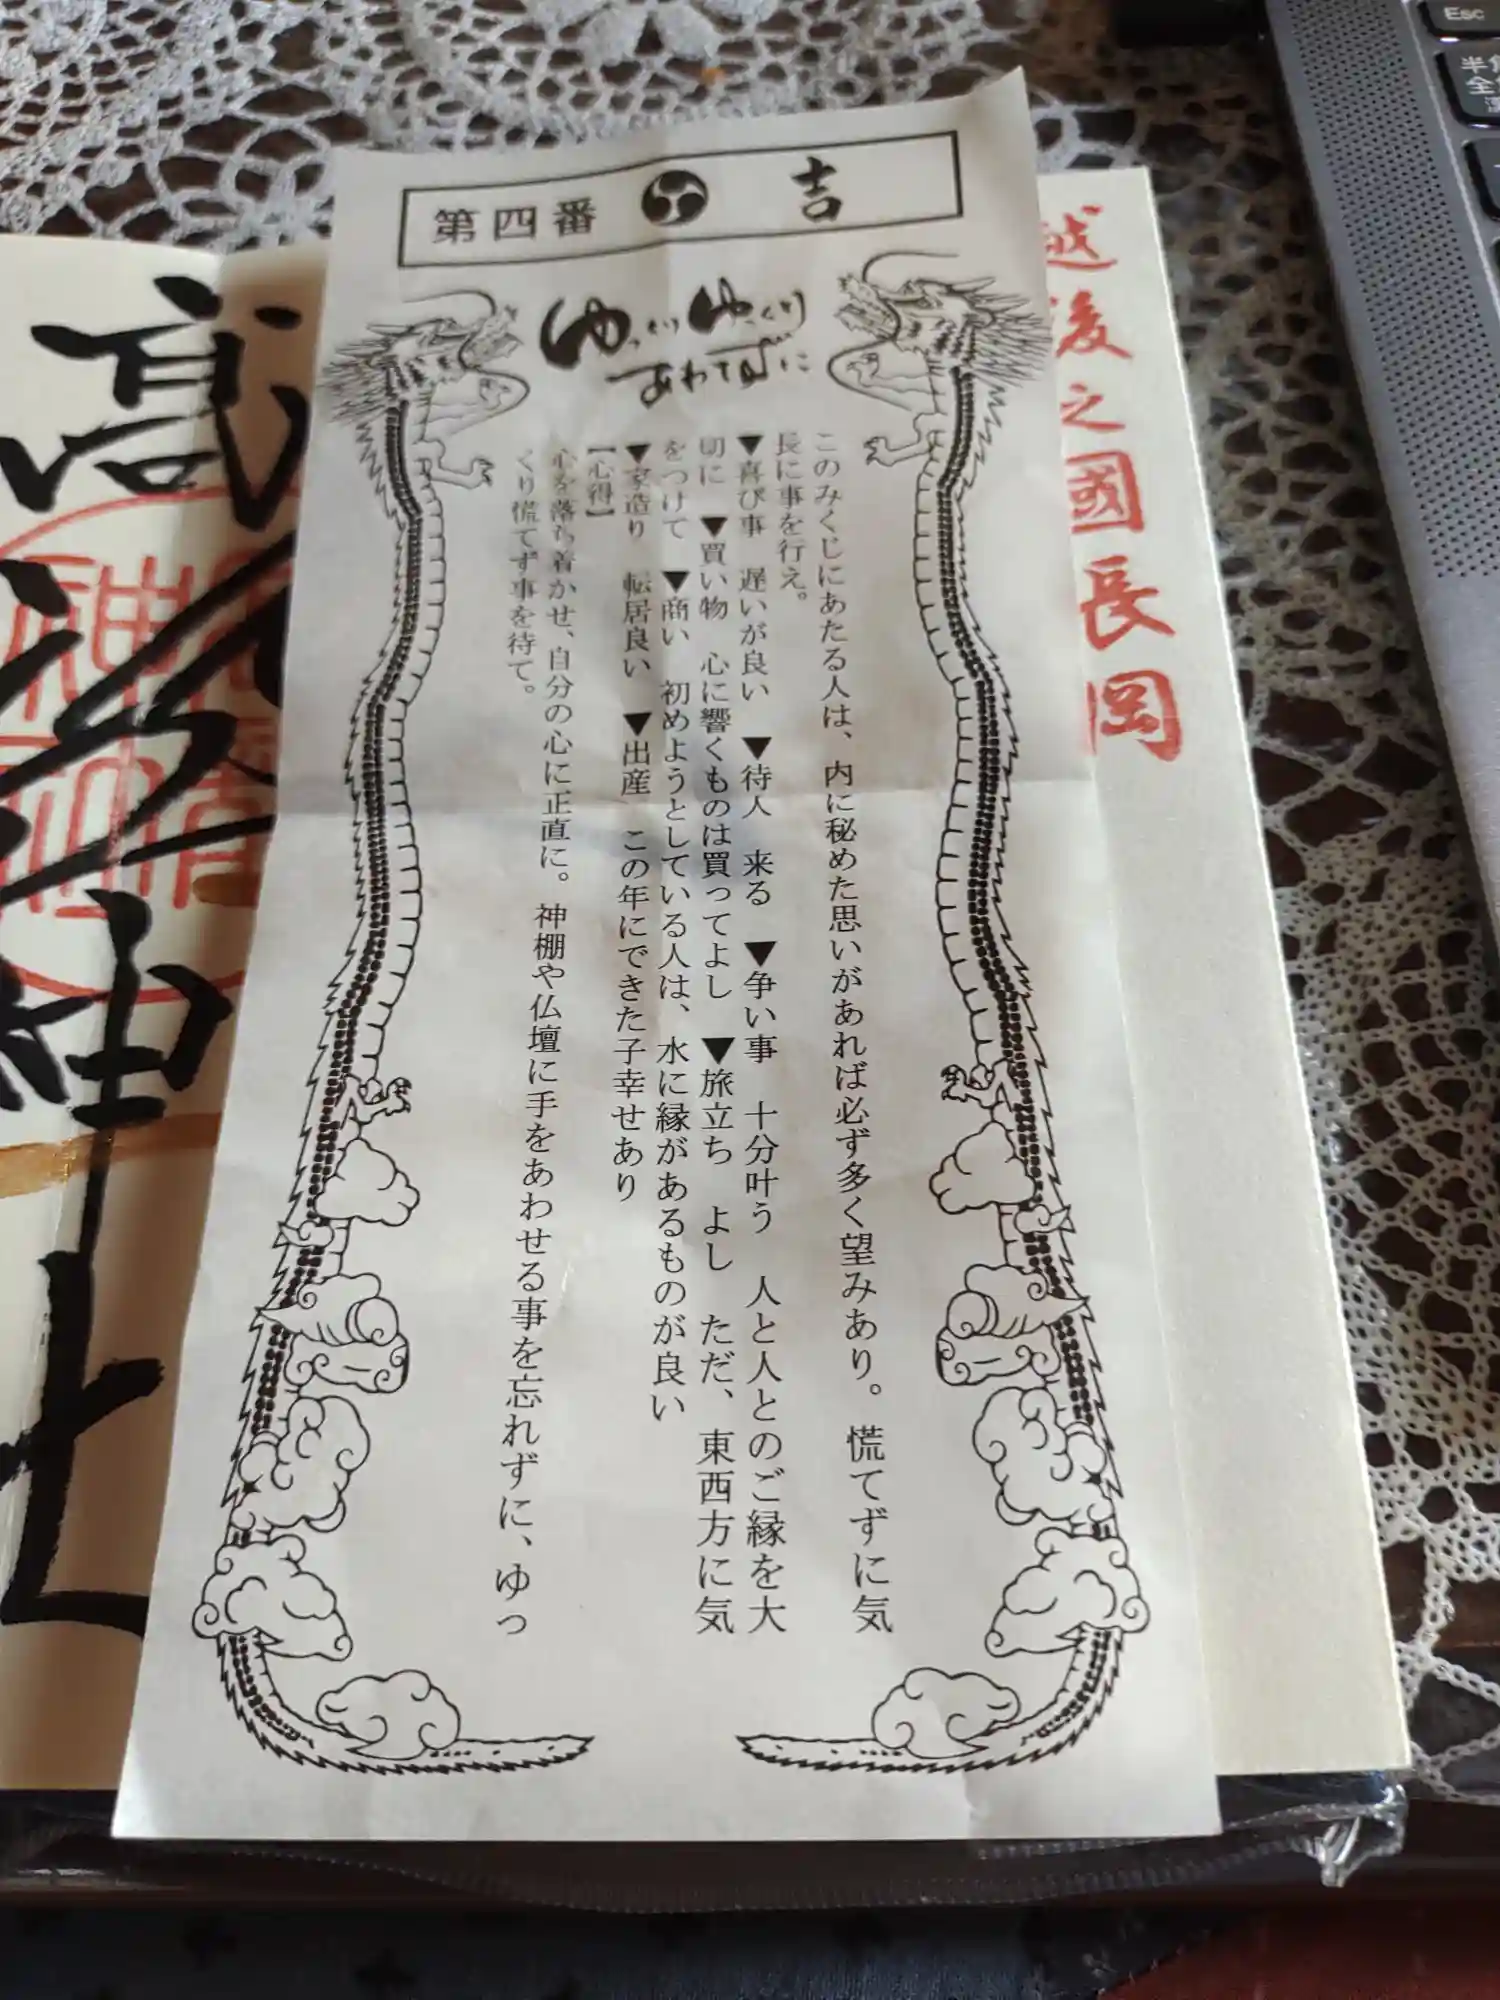 第四番 吉
ゆっくりゆっくり
あわてずに
このみくじにあたる人は、内に秘めた思いがあれば必ず多く望みあり。慌てずに気
長に事を行え。
▼喜び事 遅いが良い ▼待人 来る ▼争い事 十分叶う 人と人とのご縁を大
切に ▼買い物 心に響くものは買ってよし ▼旅立ち よし ただ、東西方に気
をつけて ▼商い 初めようとしている人は、水に縁があるものが良い
▼家造り 転居良い ▼出産 この年にできた子幸せあり
【心得】
心を落ち着かせ、自分の心に正直に。神棚や仏壇に手をあわせる事を忘れずに、ゆっ
くり慌てず事を待て。
越後之國長岡
高
社
Esc
半角
全